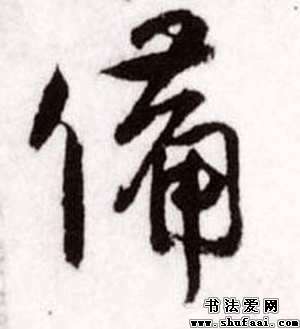 備
书法爱网
www.shufaai.com